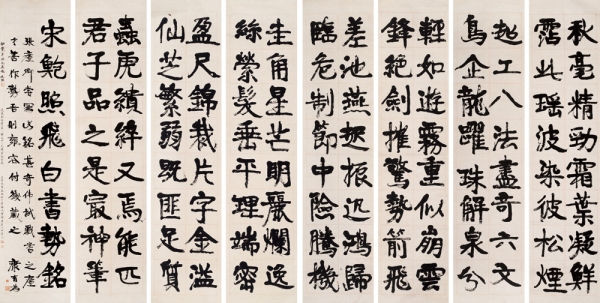 秋毫精勁霜葉凝鮮
霑此瑶波染彼松煙
超工八法盡奇六文
鳥企龍躍珠解泉分
輕如遊霧重似崩雲
鋒絕劍摧驚勢箭飛
差池燕起振迅鴻歸
臨危制節中險騰機
圭角星芒明麗爛逸
絲縈髮垂平理端密
盈尺錦裁片字金溢
仙芝繁弱既匪足質
蟲虎續又焉能匹
君子品之是冣神筆
宋鮑照飛白書勢銘
張廉卿寫此銘其奇偉
康有為